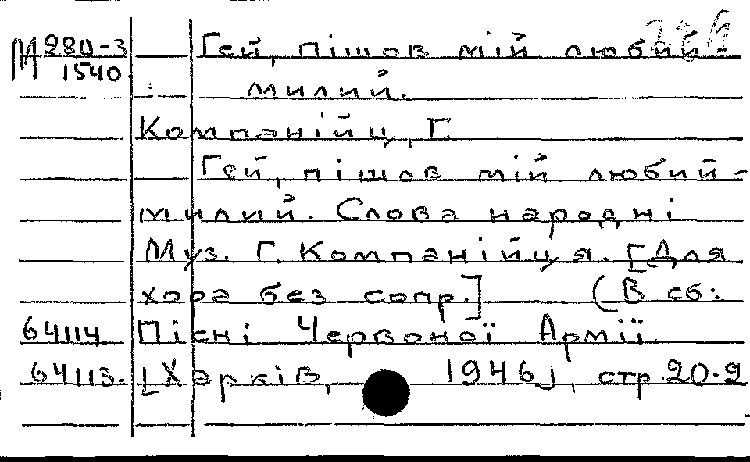 М 280-3 Гей, пішов мій любий-
1540 милий.
Компанійц, Г.
Гей, пішов мій любий-
милий. Слова народні
Муз. Г. Компанійця. [Для
хора без сопр.] (В сб:
64114 Пісні Червоної Армії
64113. [Харків, 1946], стр. 20-2